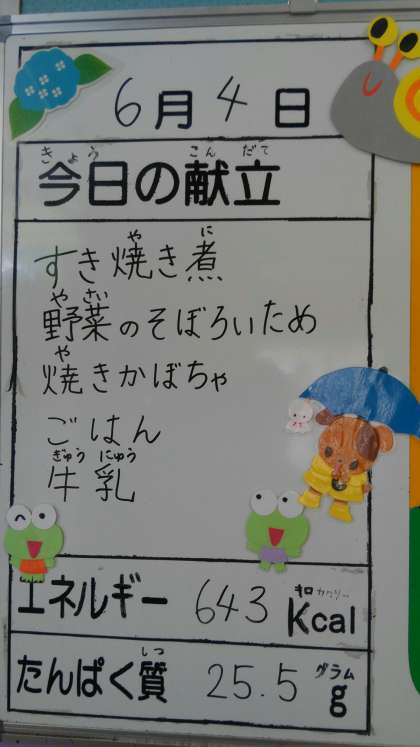 6月4日
きょう こん だて
今日の献立
や に
すき焼き煮
や さい
野菜のそぼろいため
や
焼きかぼちゃ
ごはん
ぎゅう にゅう
牛乳
キロカロリー
エネルギー 643 Kcal
しつ グラム
たんぱく質 25.5 g